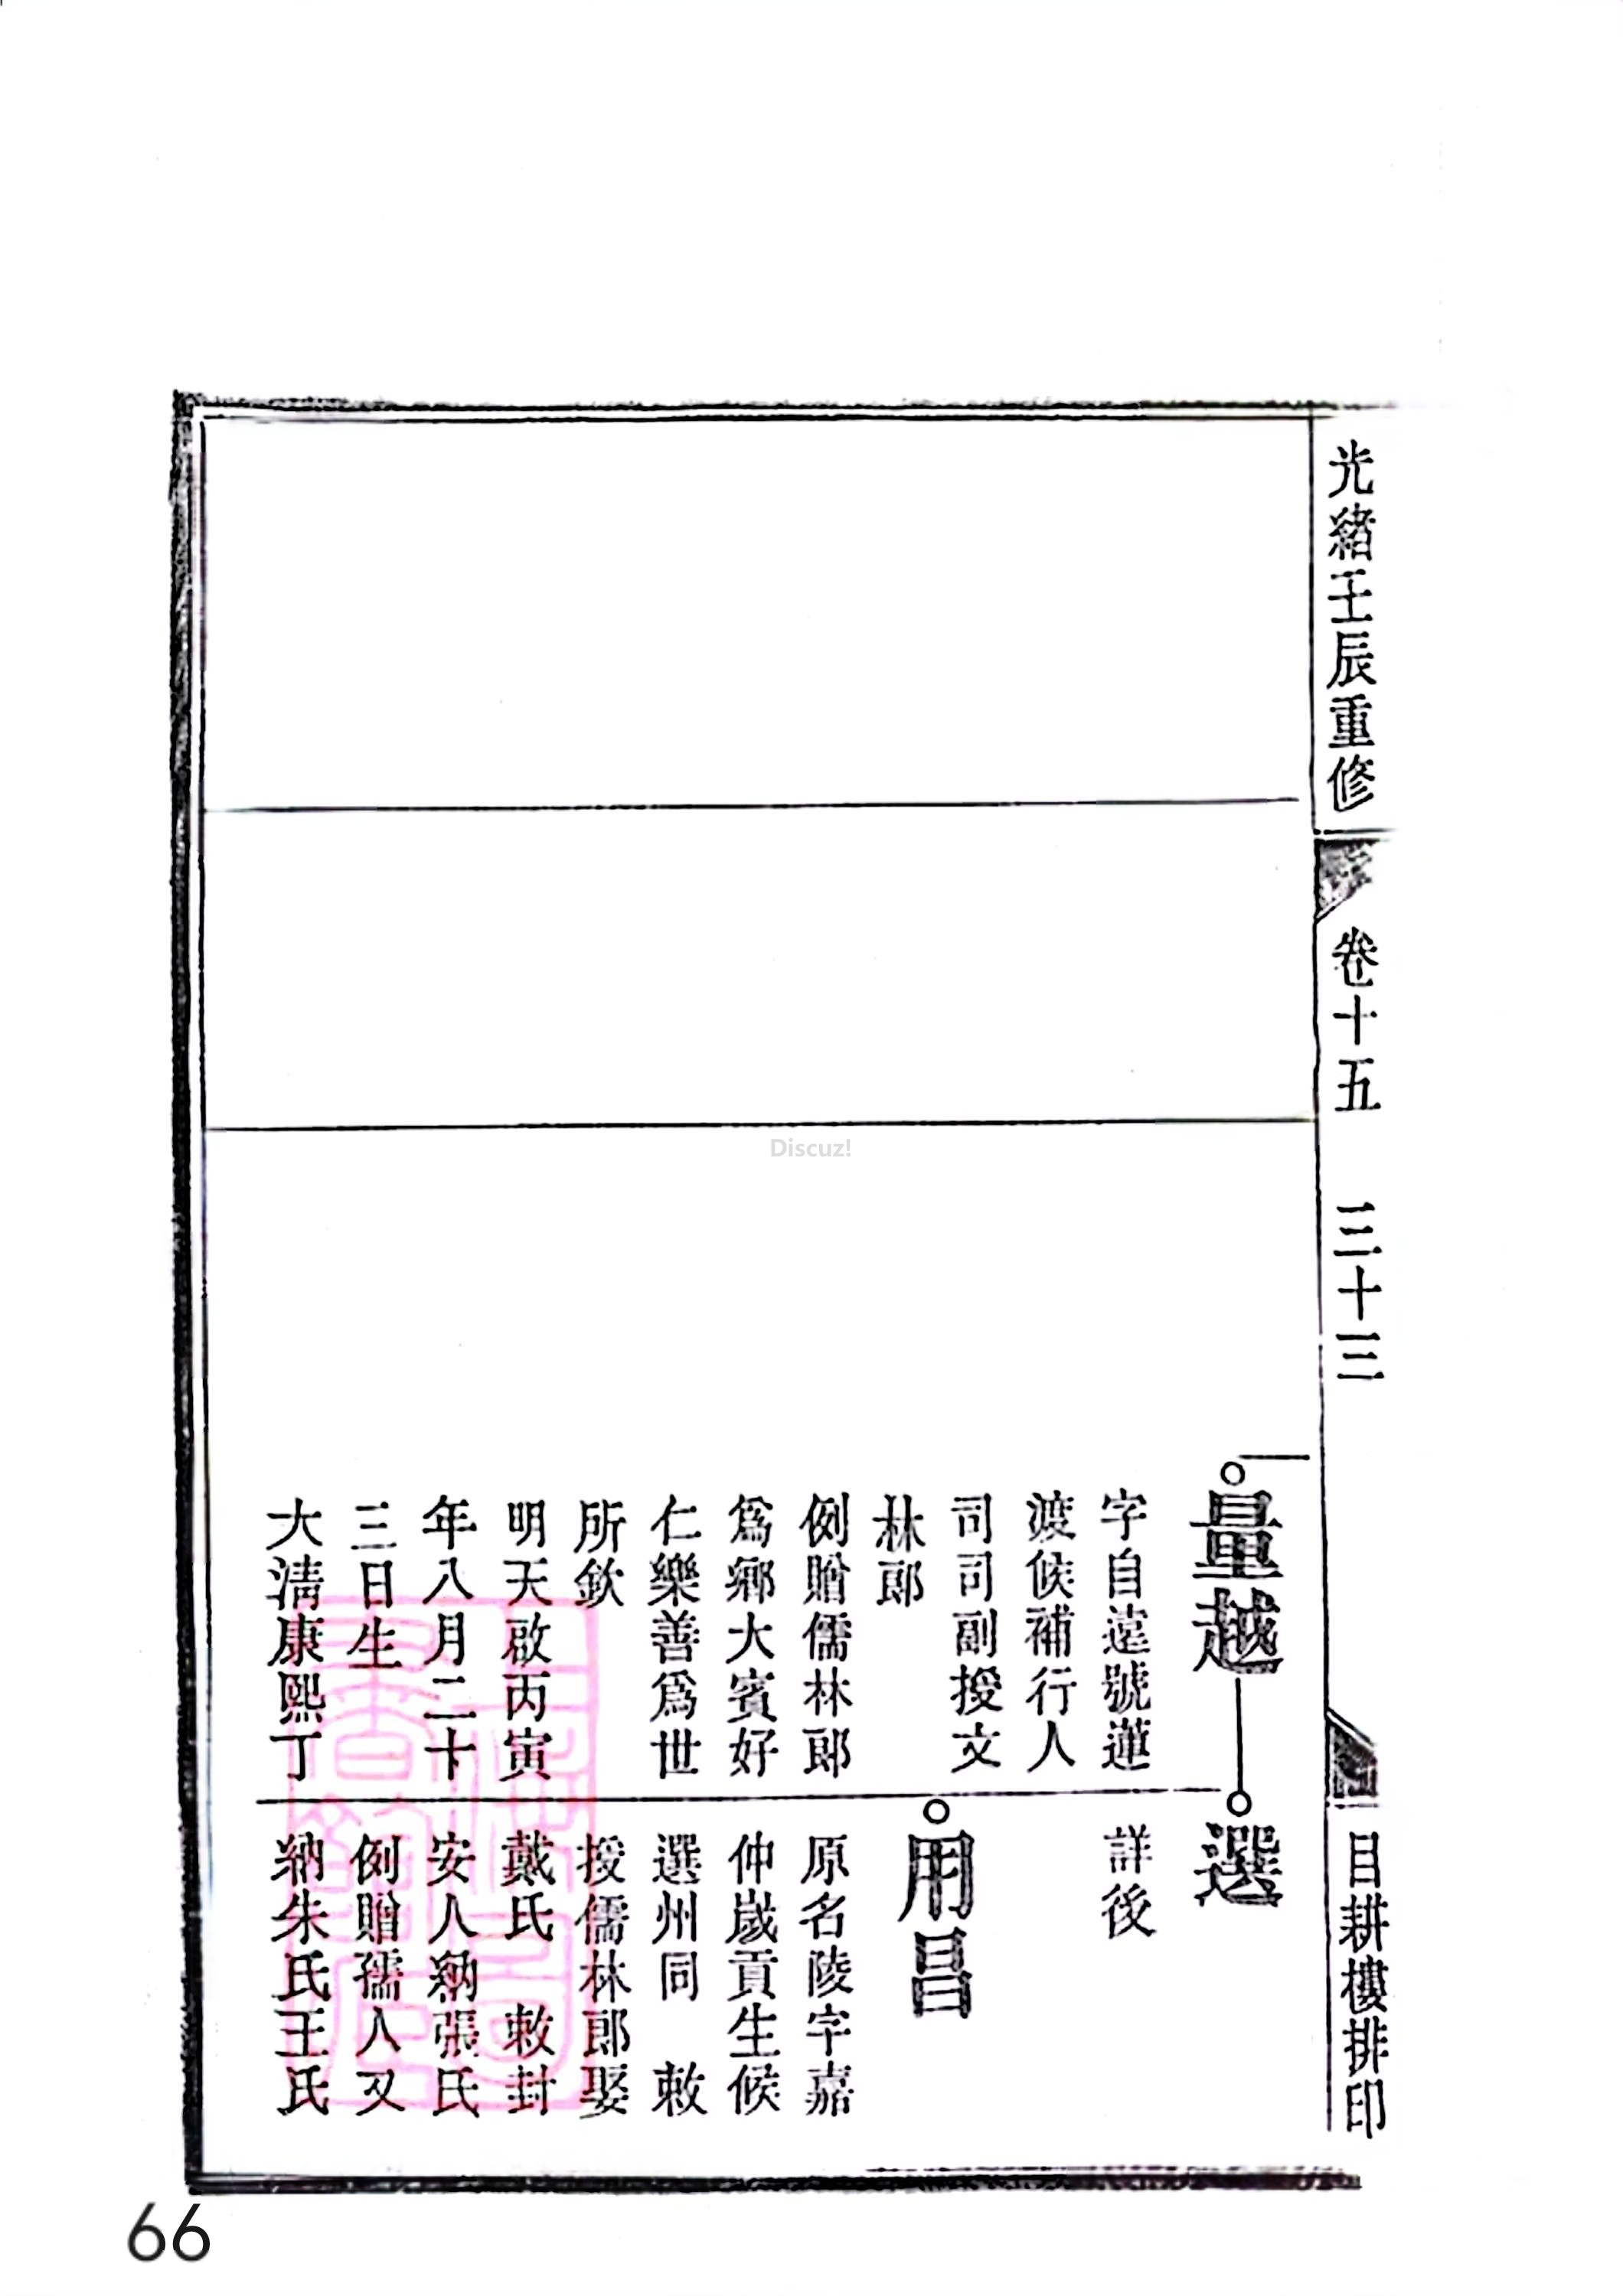 光緒壬辰重修
卷十五
三十三
目耕樓排印
量越
字自遠號蓮
渡候補行人
司司副授文
林郎
例贈儒林郎
爲鄉大賓好
仁樂善爲世
所欽
明天啟丙寅
年八月二十
三日生
大清康熙丁
選
詳後
用昌
原名陵字嘉
仲歲貢生候
選州同 敕
授儒林郎娶
戴氏 敕封
安人納張氏
例贈孺人又
納朱氏王氏
Discuz!
66